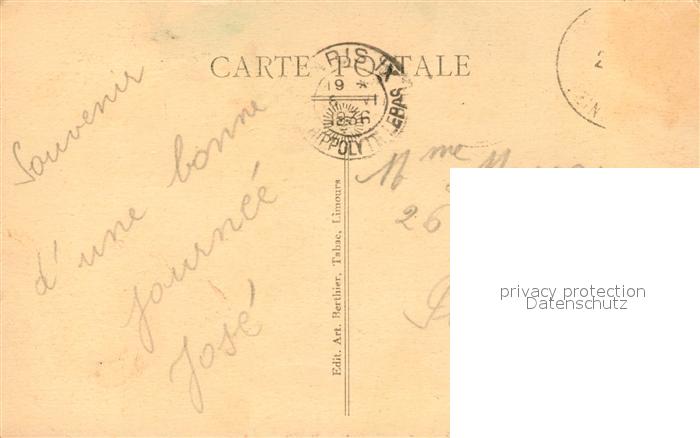 CARTE POSTALE
RIS IX
19 *
VI
36
HIPPOLYTE LEBAS
Souvenir
d'une bonne
journéé
José
Edit. Art. Berthier, Tabac, Limours
Mme
26
privacy protection
Datenschutz